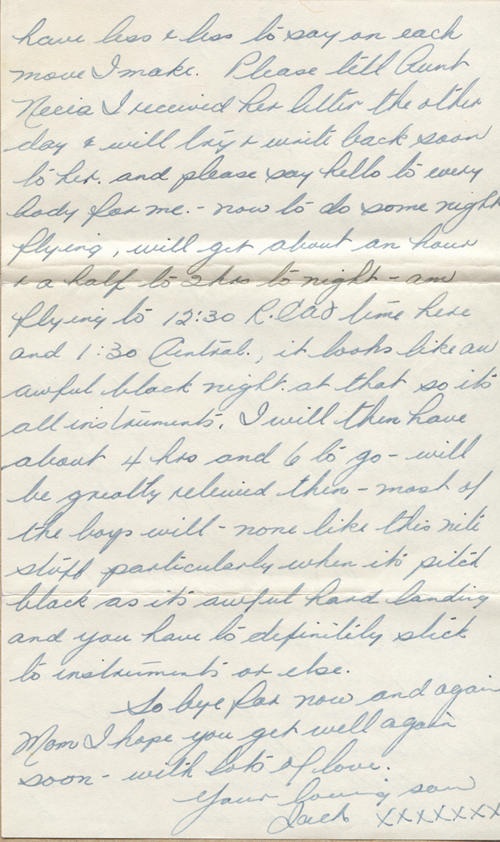 have less & less to say on each
move I make. Please tell Aunt
Necia I received her letter the other
day & will try & write back soon
to her. and please say hello to every
body for me. - now to do some night
flying, will get about an hour
& a half to 2 hrs to night - am
flying to 12:30 R.CAF time here
and 1:30 Central., it looks like an
awful black night. at that so it's
all instruments. I will then have
about 4 hrs and 6 to go - will
be greatly releived then - most of
the boys will - none like this nite
stuff particularly when it's pitch
black as it's awful hard landing
and you have to definitily stick
to instruments or else.
So bye for now and again
Mom I hope you get well again
soon - with lots of love.
Your loving son
Jack xxxxxxx